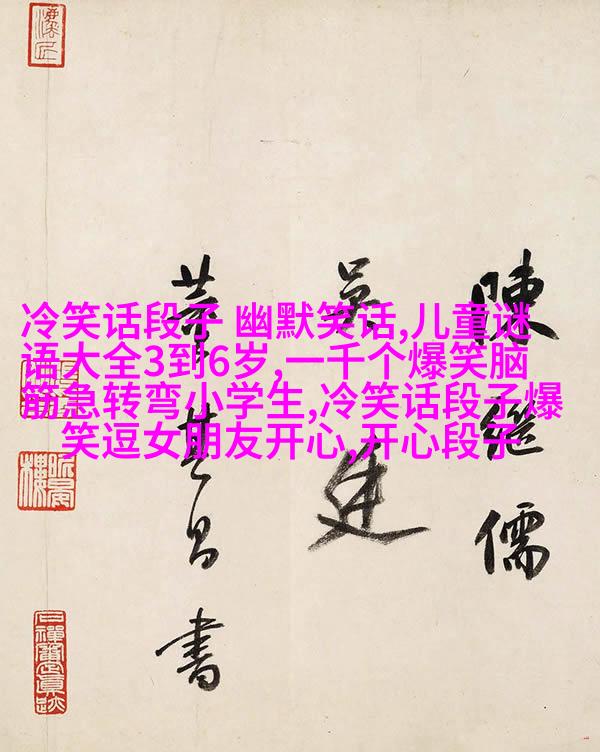 冷笑话段子 幽默笑话,儿童谜
语大全3到6岁,一千个爆笑脑
筋急转弯小学生,冷笑话段子爆
笑逗女朋友开心,开心段子
陳繼儒
吳廷
董其昌書